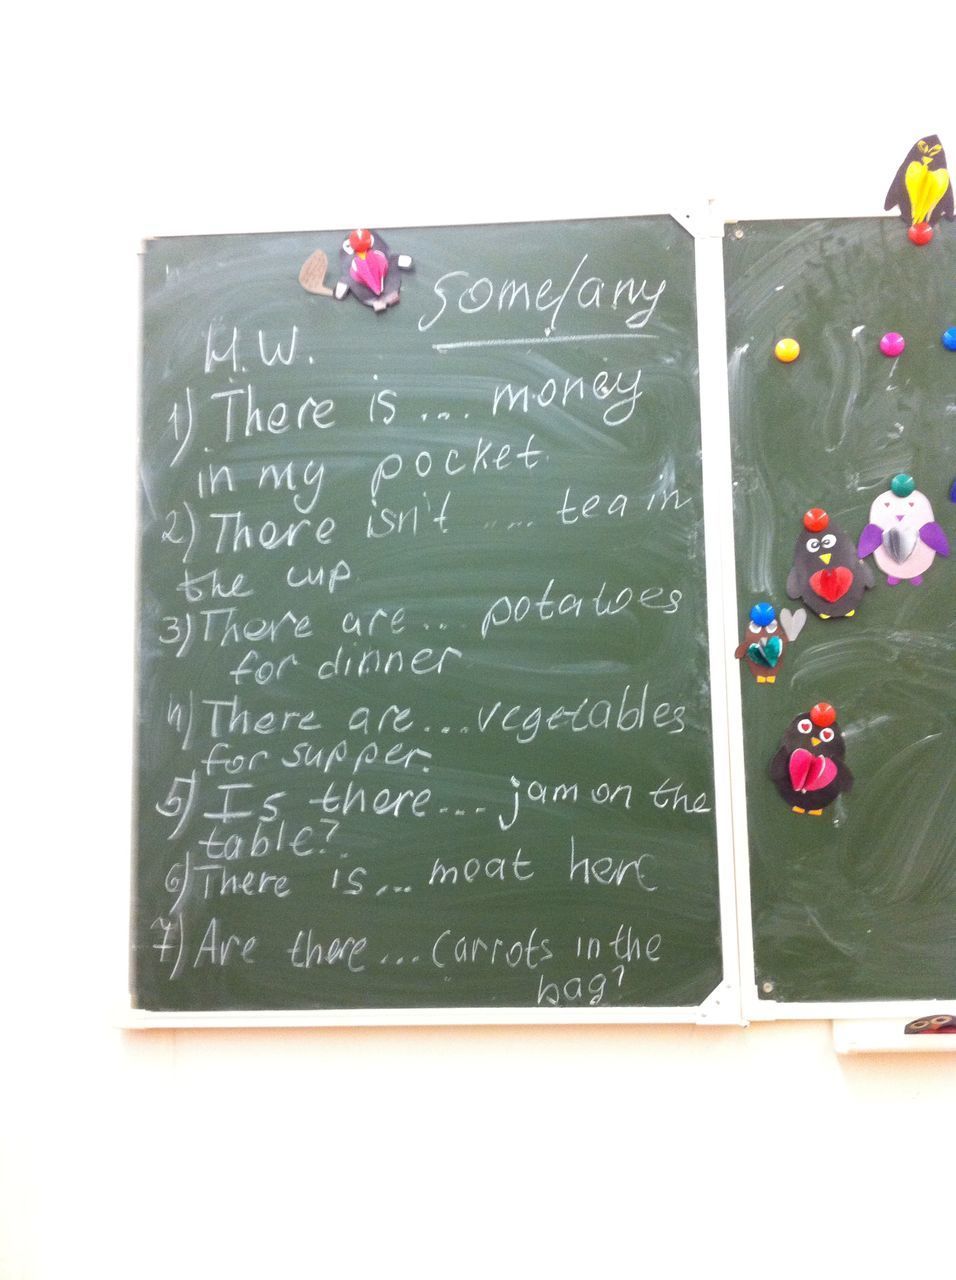 some/any
H.W.
1) There is .... money
in my pocket.
2) There isn't ..... tea in
the cup.
3) There are ... potatoes
for dinner
4) There are ... vegetables
for supper.
5) Is there ... jam on the
table?
6) There is ... meat here
7) Are there ... carrots in the
bag?